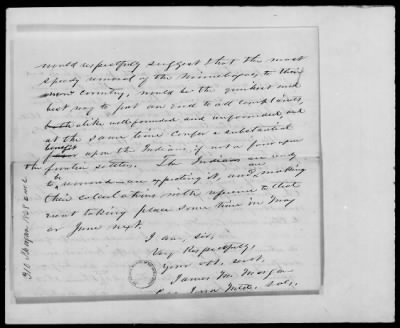 would respectfully suggest that the most
speedy removal of the Winnebagoes, to their
new country, would be the quickest and
best way to put an end to all complaints,
both alike well founded and unfounded, and
at the same time confer a substantial
benefit
upon the Indians, if not a favor upon
the frontier settlers. The Indians are ready
to be removed are expecting it, and are making
their calculations with reference to that
event taking place some time in May
or June next.
I am, sir,
Very Respectfully,
Your obt. servt.
James M. Morgan